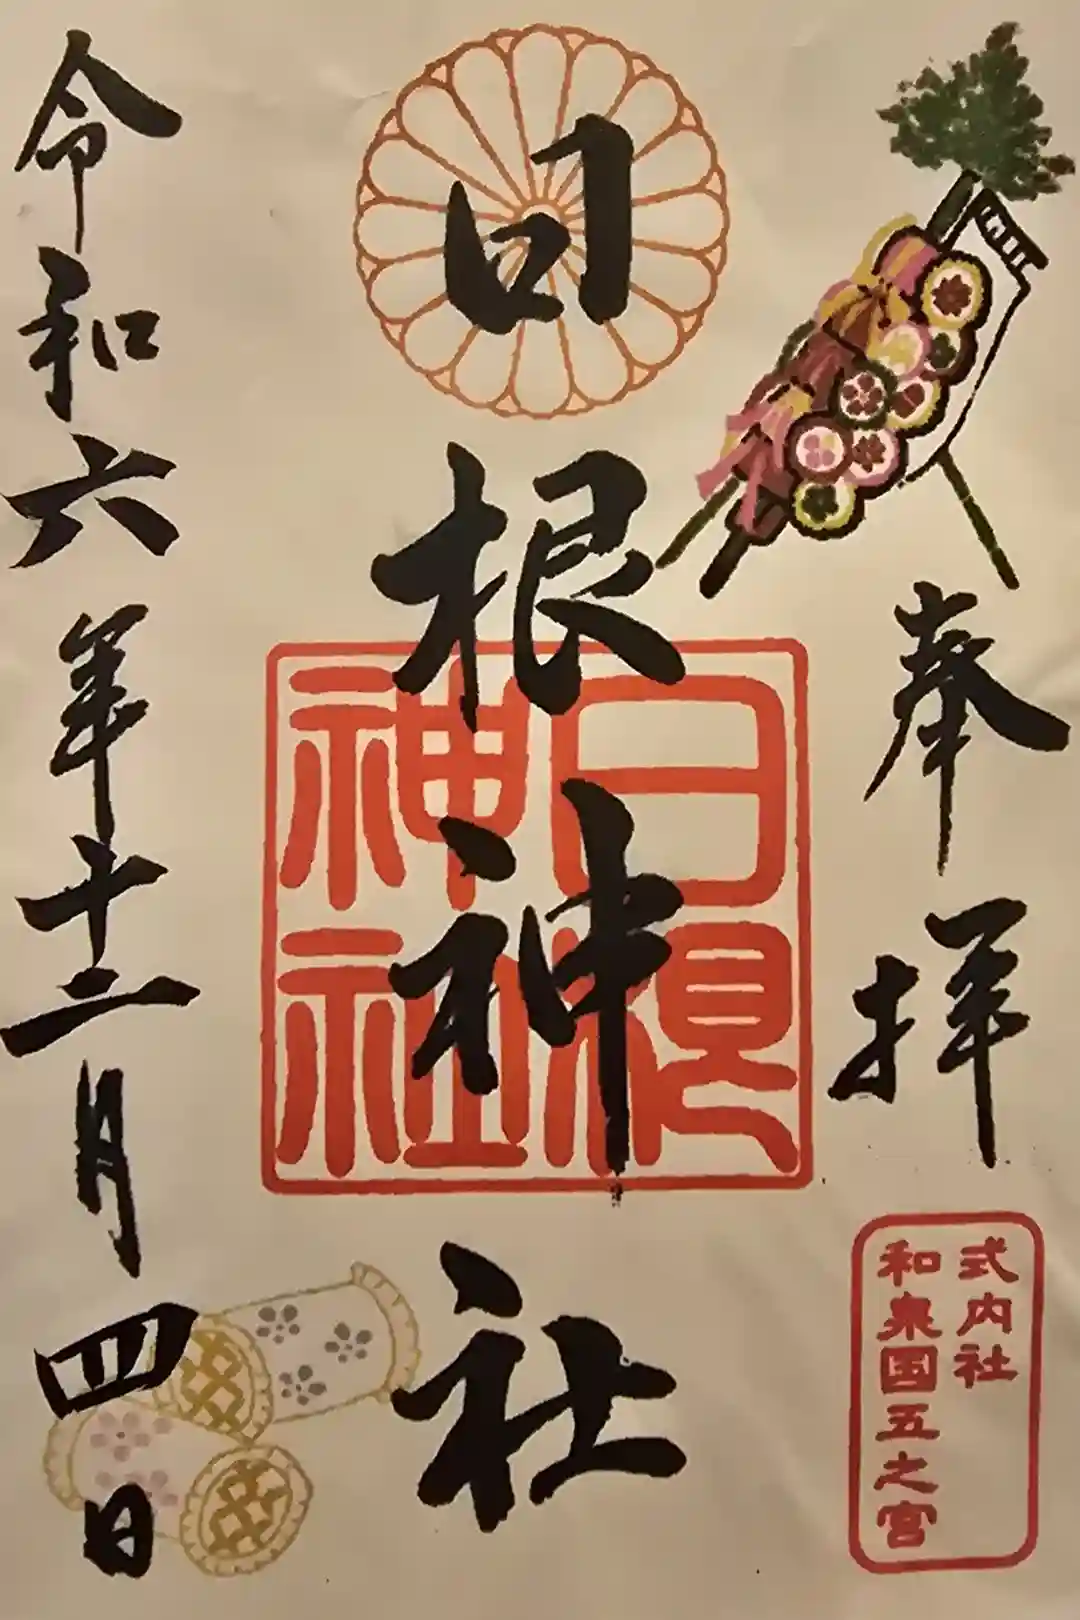 奉拝
式内社
和泉国五之宮
日根神社
日根
神社
令和六年十二月四日